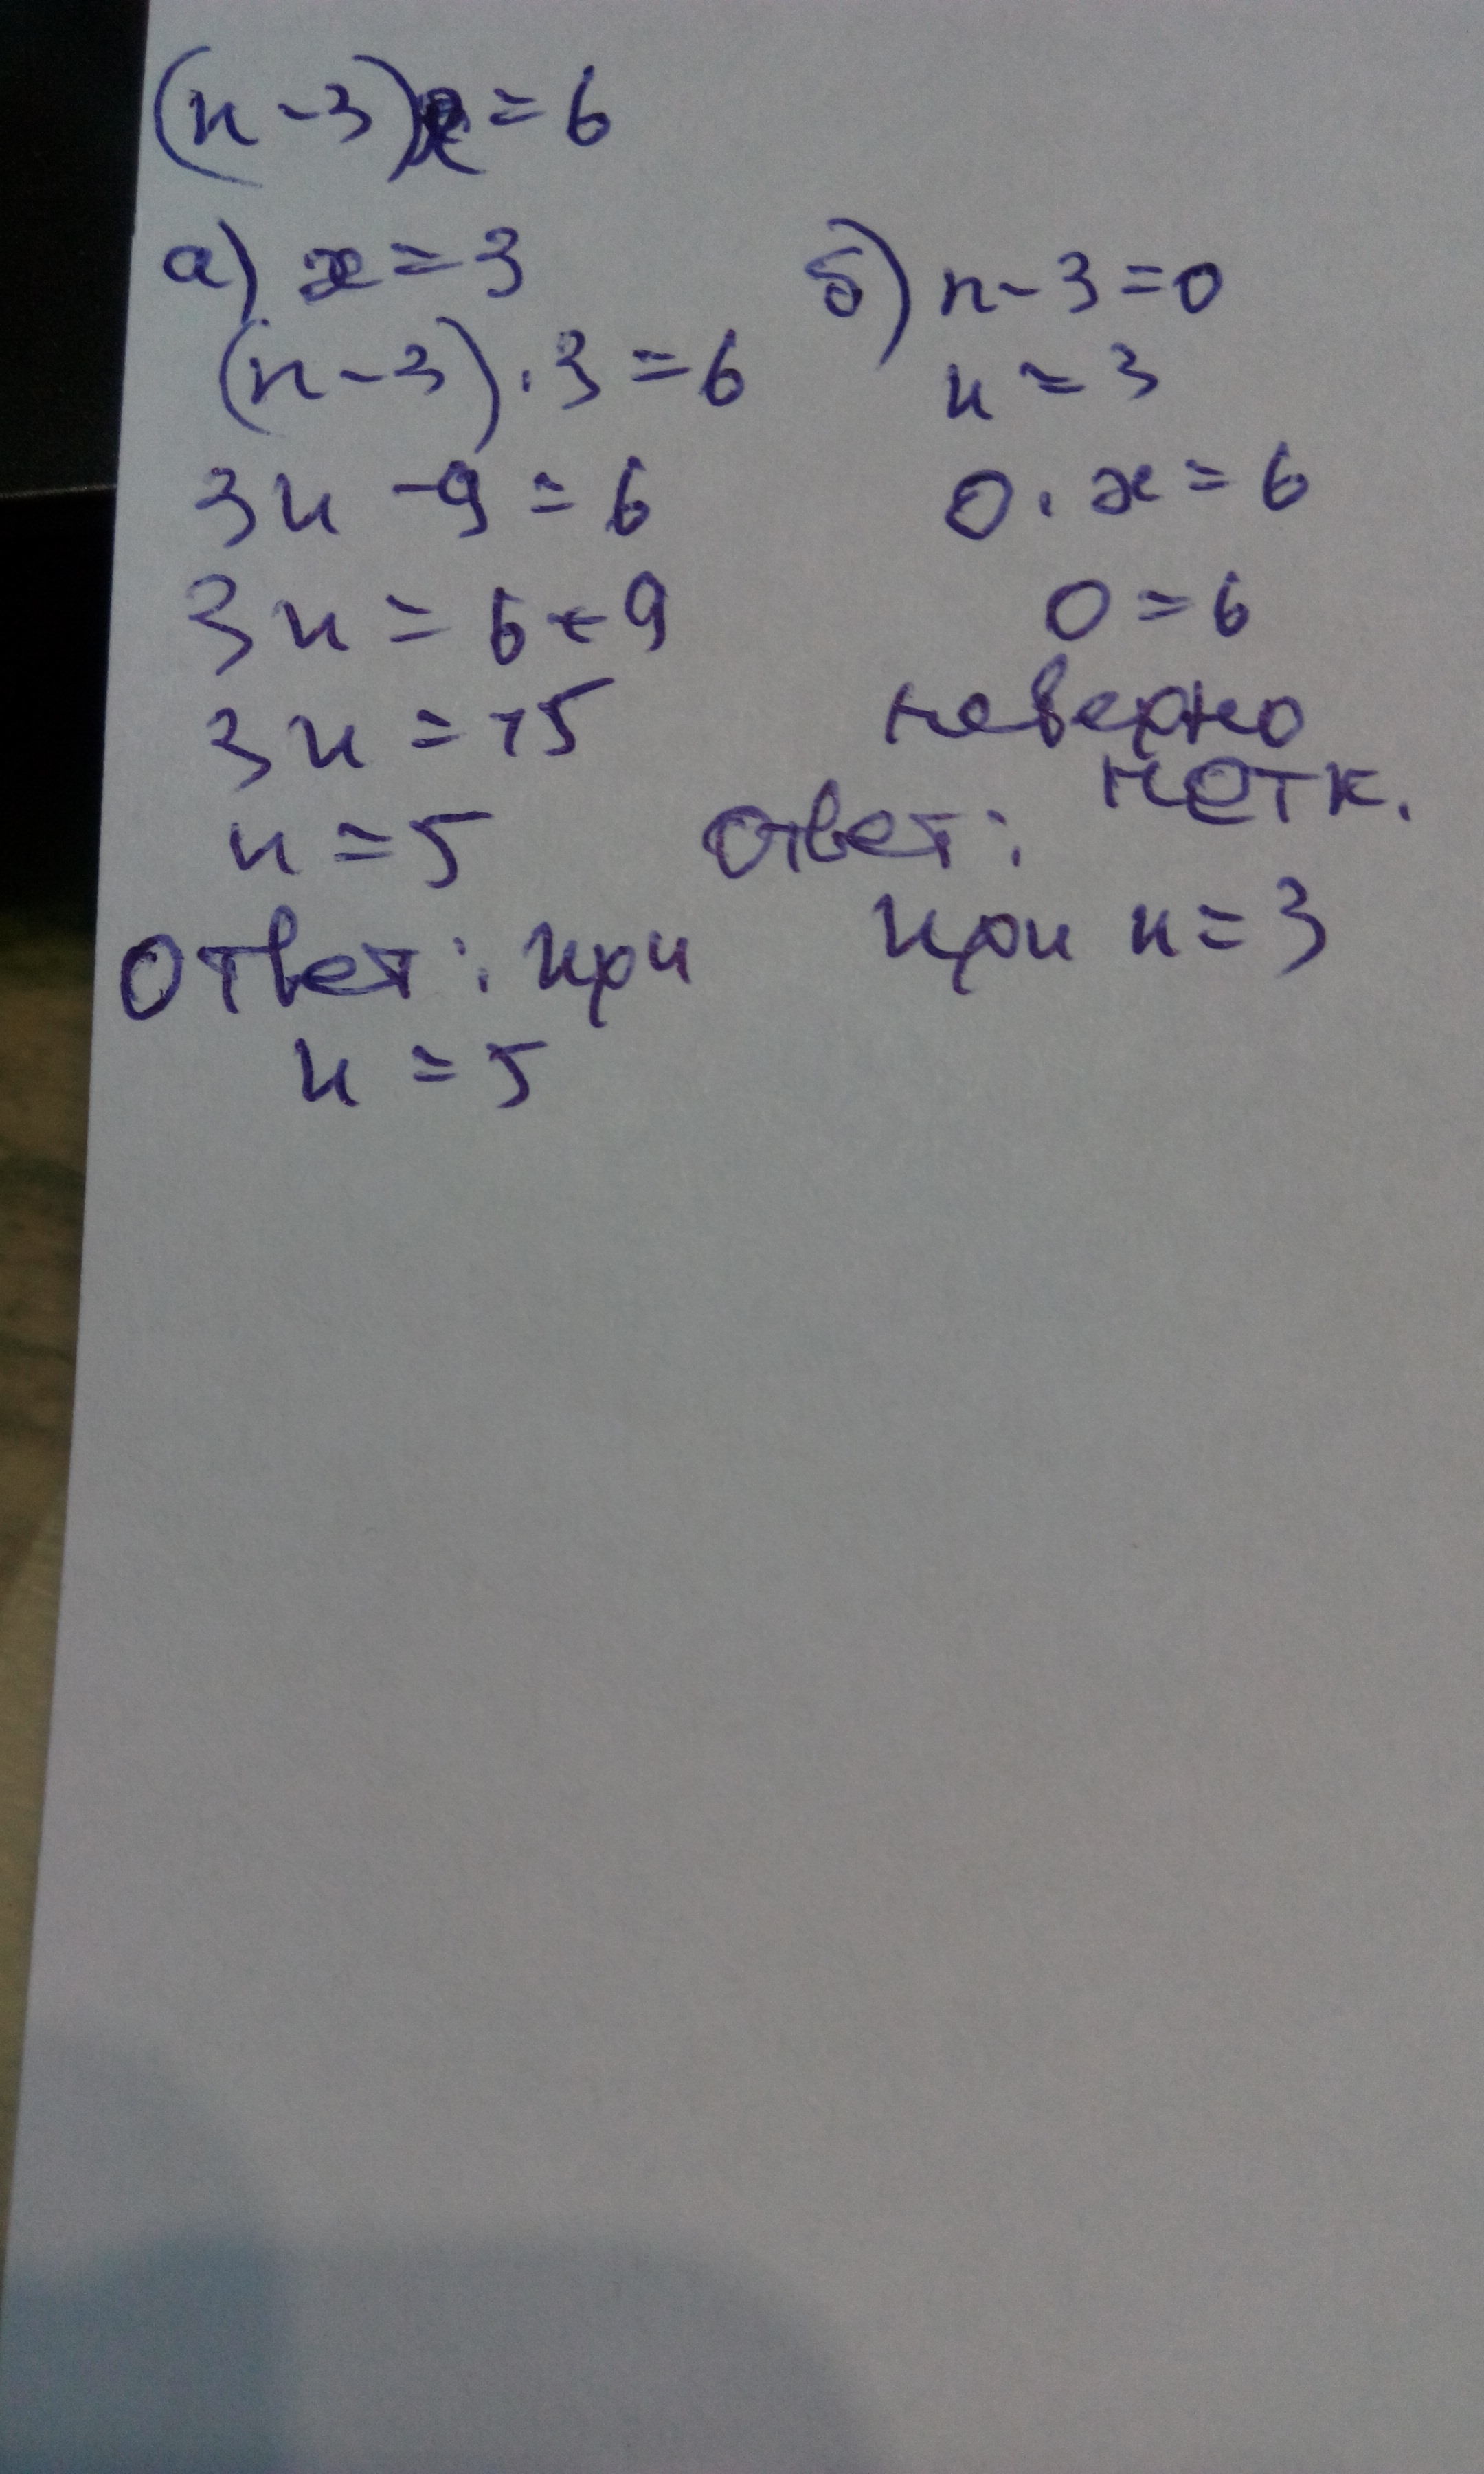 (n-3)x=6
а) x=3
(n-3)·3=6
3n-9=6
3n=6+9
3n=15
n=5
Ответ: при
n=5
б) n-3=0
n=3
0·x=6
0=6
неверно
нет к.
Ответ:
при n=3